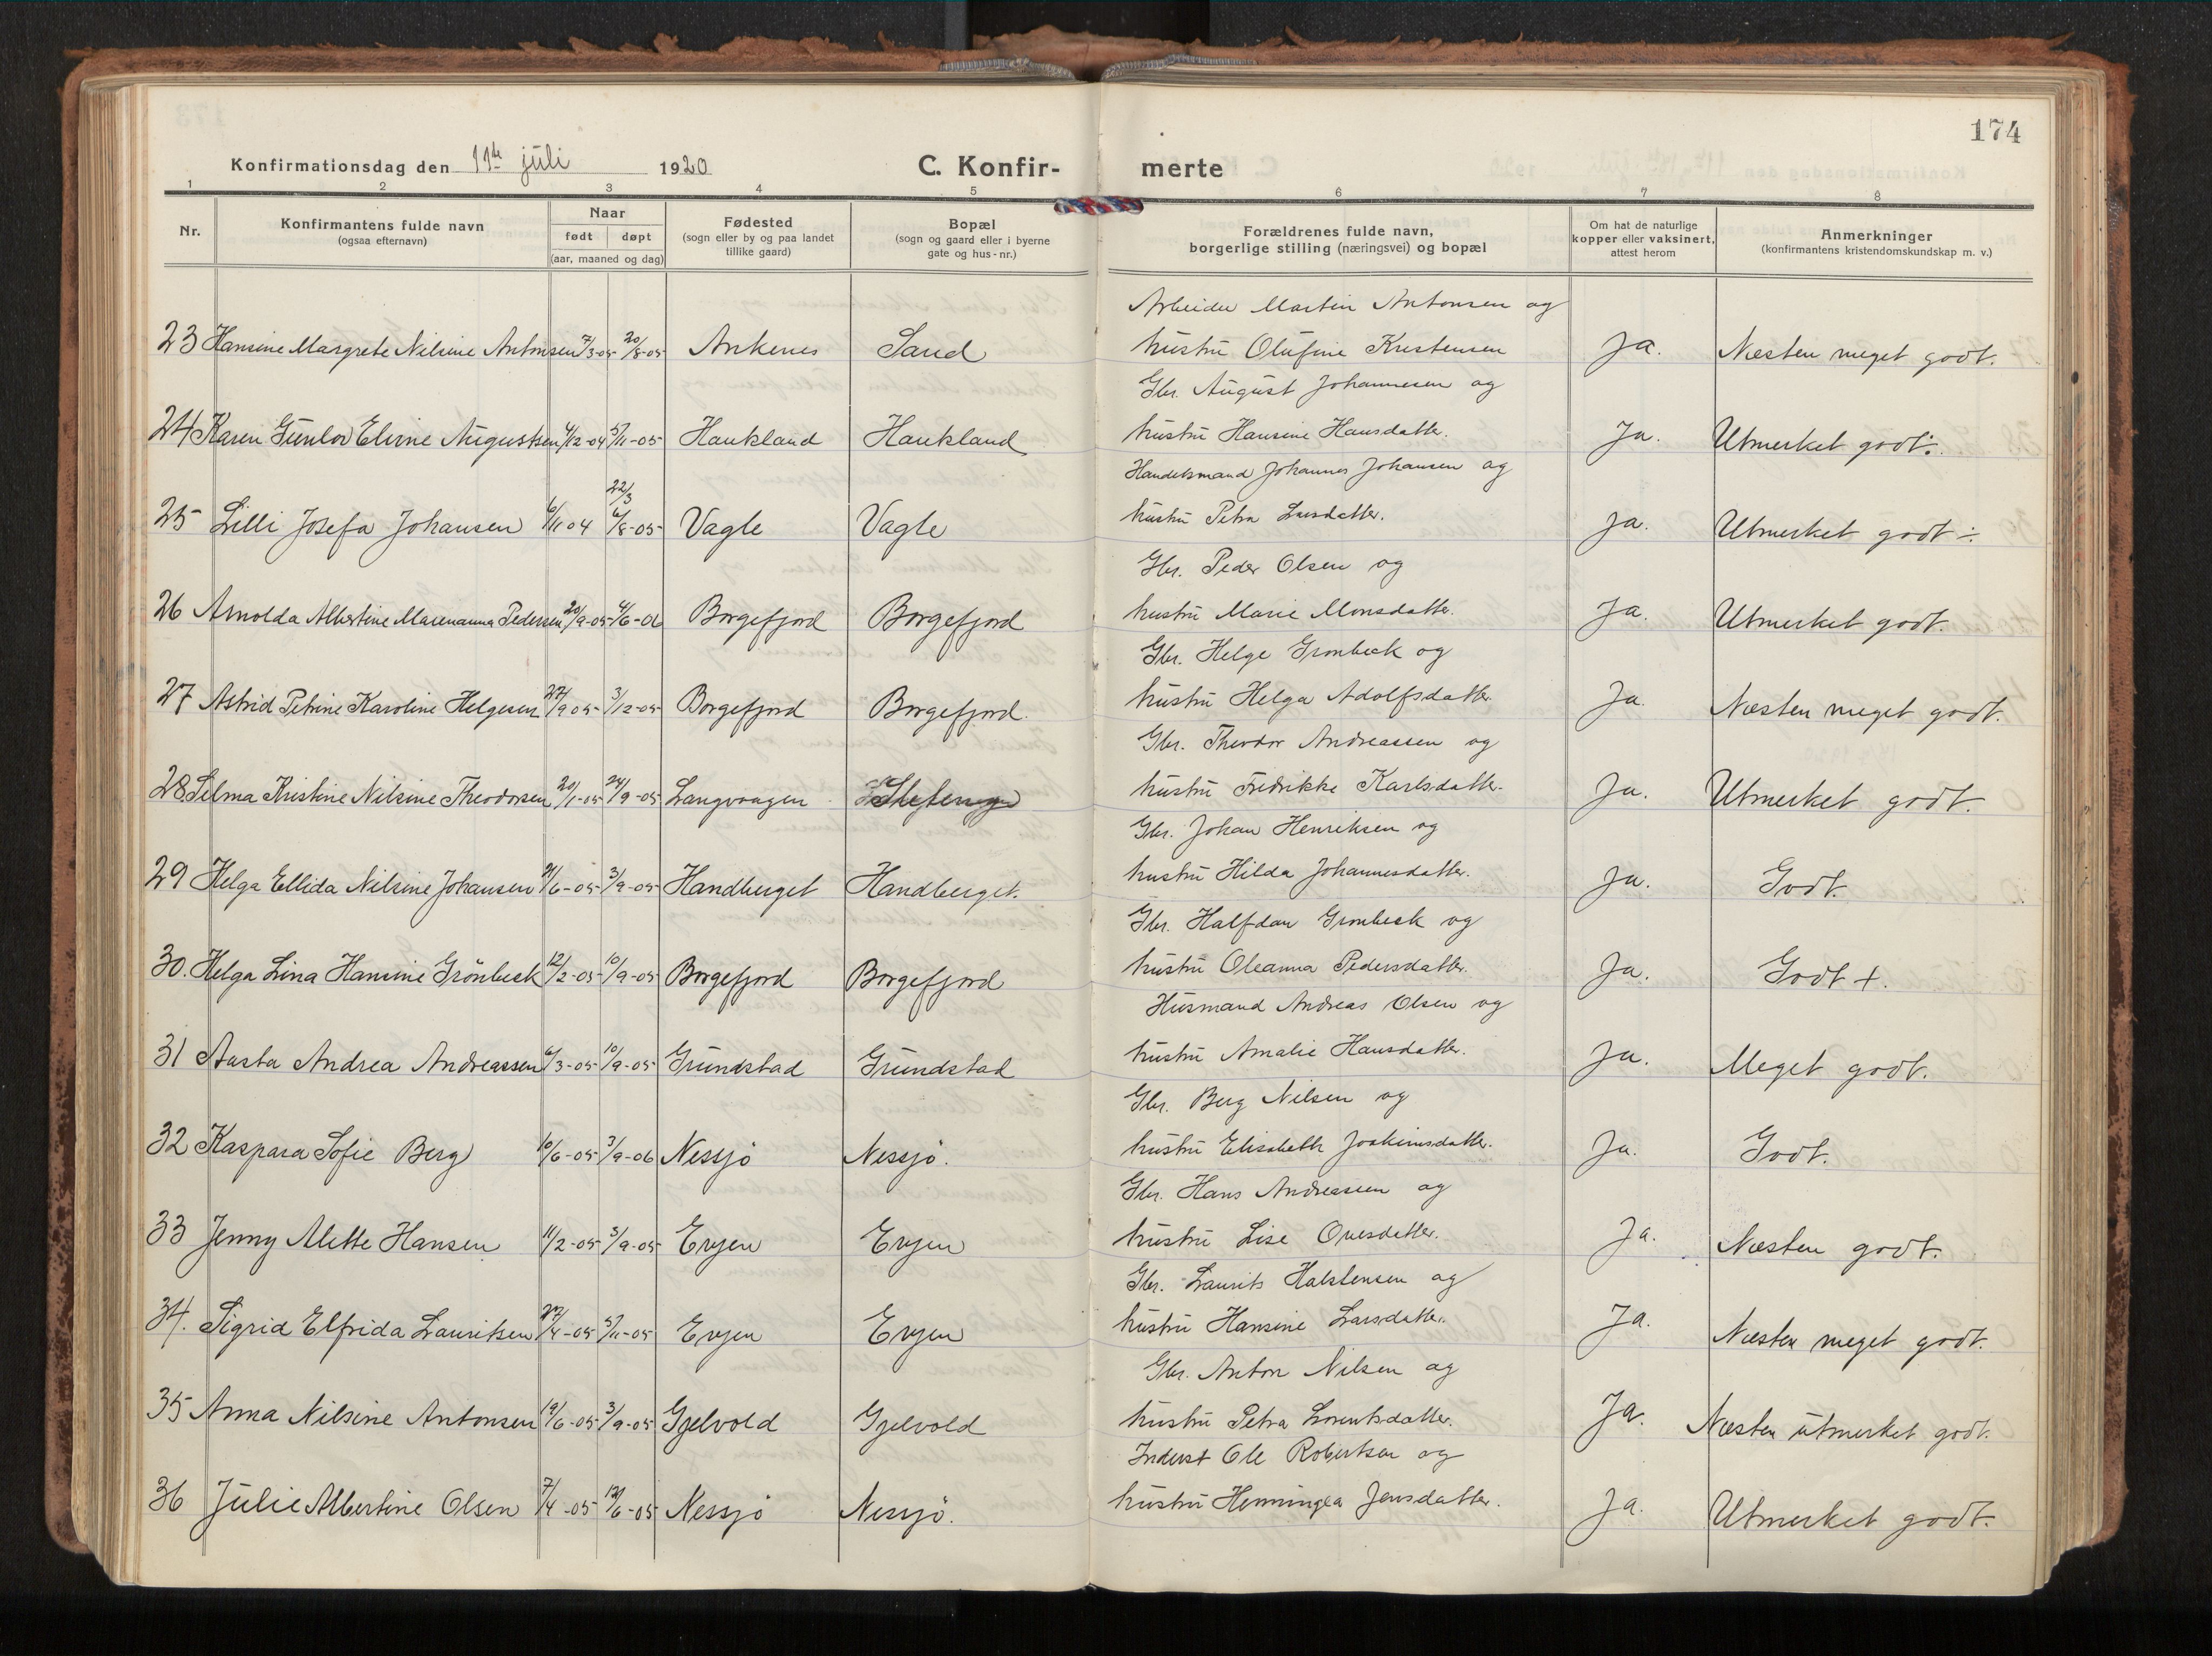 174
Konfirmationsdag den 11te juli 1920
C. Konfir- merte
1 2 3 4 5 6 7 8
Nr.
Konfirmantens fulde navn
(ogsaa efternavn)
Naar
født døpt
(aar, maaned og dag)
Fødested
(sogn eller by og paa landet
tillike gaard)
Bopæl
(sogn og gaard eller i byerne
gate og hus-nr.)
Forældrenes fulde navn,
borgerlige stilling (næringsvei) og bopæl
Om hat de naturlige
kopper eller vaksinert,
attest herom
Anmerkninger
(konfirmantens kristendomskundskap m. v.)
Arbeider Martin Antonsen og
23 Hansine Margrete Nilsine Antonsen 7/3-05 20/8-05 Ankenes Sand hustru Olufine Kristensen Ja. Næsten meget godt.
Gbr. August Johannesen og
24 Karen Gunlov Elvine Augustsen 4/12-04 5/11-05 Haukland Haukland hustru Hansine Hansdatter. Ja. Utmerket godt.
Handelsmand Johannes Johansen og
22/3
25 Lilli Josefa Johansen 6/11 04 6/8-05 Vagle Vagle hustru Petra Larsdatter. Ja. Utmerket godt ÷.
Gbr. Peder Olsen og
26 Arnolda Albertine Marenanna Pedersen 20/9-05 4/6-06 Borgefjord Borgefjord hustru Marie Monsdatter. Ja. Utmerket godt.
Gbr. Helge Grønbeck og
27 Astrid Petrine Karoline Helgesen 27/9 05 3/12-05 Borgefjord Borgefjord. hustru Helga Adolfsdatter Ja. Næsten meget godt.
Gbr. Theodor Andreassen og
28 Selma Kristine Nilsine Theodorsen 20/1-05 24/9-05 Langvaagen hustru Fredrikke Karlsdatter. Ja. Utmerket godt.
Gbr. Johan Henriksen og
29 Helga Ellida Nilsine Johansen 21/6-05 3/9-05 Handberget Handberget. hustru Hilda Johannesdatter. Ja. Godt.
Gbr. Halfdan Grønbeck og
30. Helga Lina Hansine Grönbeck 12/2-05 10/9-05 Borgefjord Borgefjord hustru Oleanna Pedersdatter. Ja. Godt +.
Husmand Andreas Olsen og
31 Aasta Andrea Andreassen 6/3-05 10/9-05 Grundstad Grundstad hustru Amalie Hansdatter. Ja. Meget godt.
Gbr. Berg Nilsen og
32 Kaspara Sofie Berg 10/6-05 3/9-06 Nessjö Nessjö. hustru Elisabeth Joakimsdatter. Ja. Godt.
Gbr. Hans Andreassen og
33 Jenny Alette Hansen 11/2-05 3/9-05 Evjen Evjen hustru Lise Ovesdatter. Ja. Næsten godt.
Gbr. Laurits Halstensen og
34. Sigrid Elfrida Lauritsen 27/4-05 5/11-05 Evjen Evjen hustru Hansine Larsdatter. Ja. Næsten meget godt.
Gbr. Anton Nilsen og
35 Anna Nilsine Antonsen 19/6-05 3/9-05 Gjelvold Gjelvold hustru Petra Lorentsdatter. Ja. Næsten utmerket godt.
Inderst Ole Robertsen og
36 Julie Albertine Olsen 7/4-05 12/6-05 Nessjö Nessjö. hustru Henningea Jensdatter. Ja. Utmerket godt.